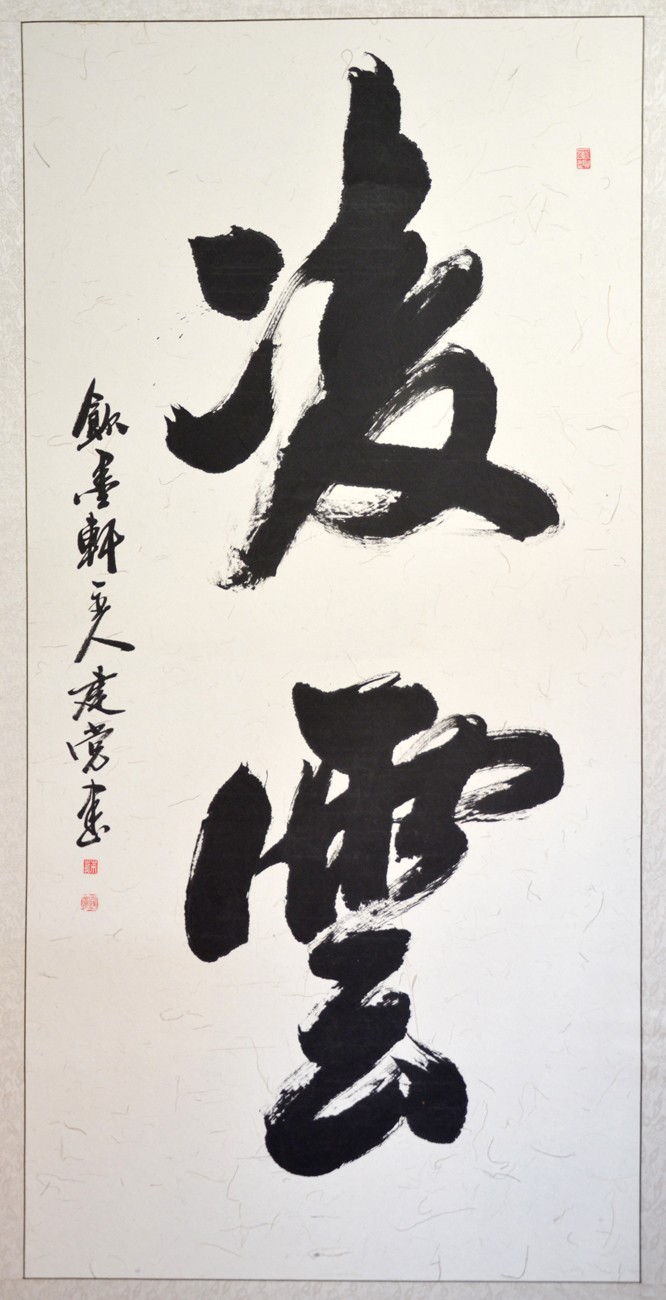 凌雲
飲墨軒主人建常書